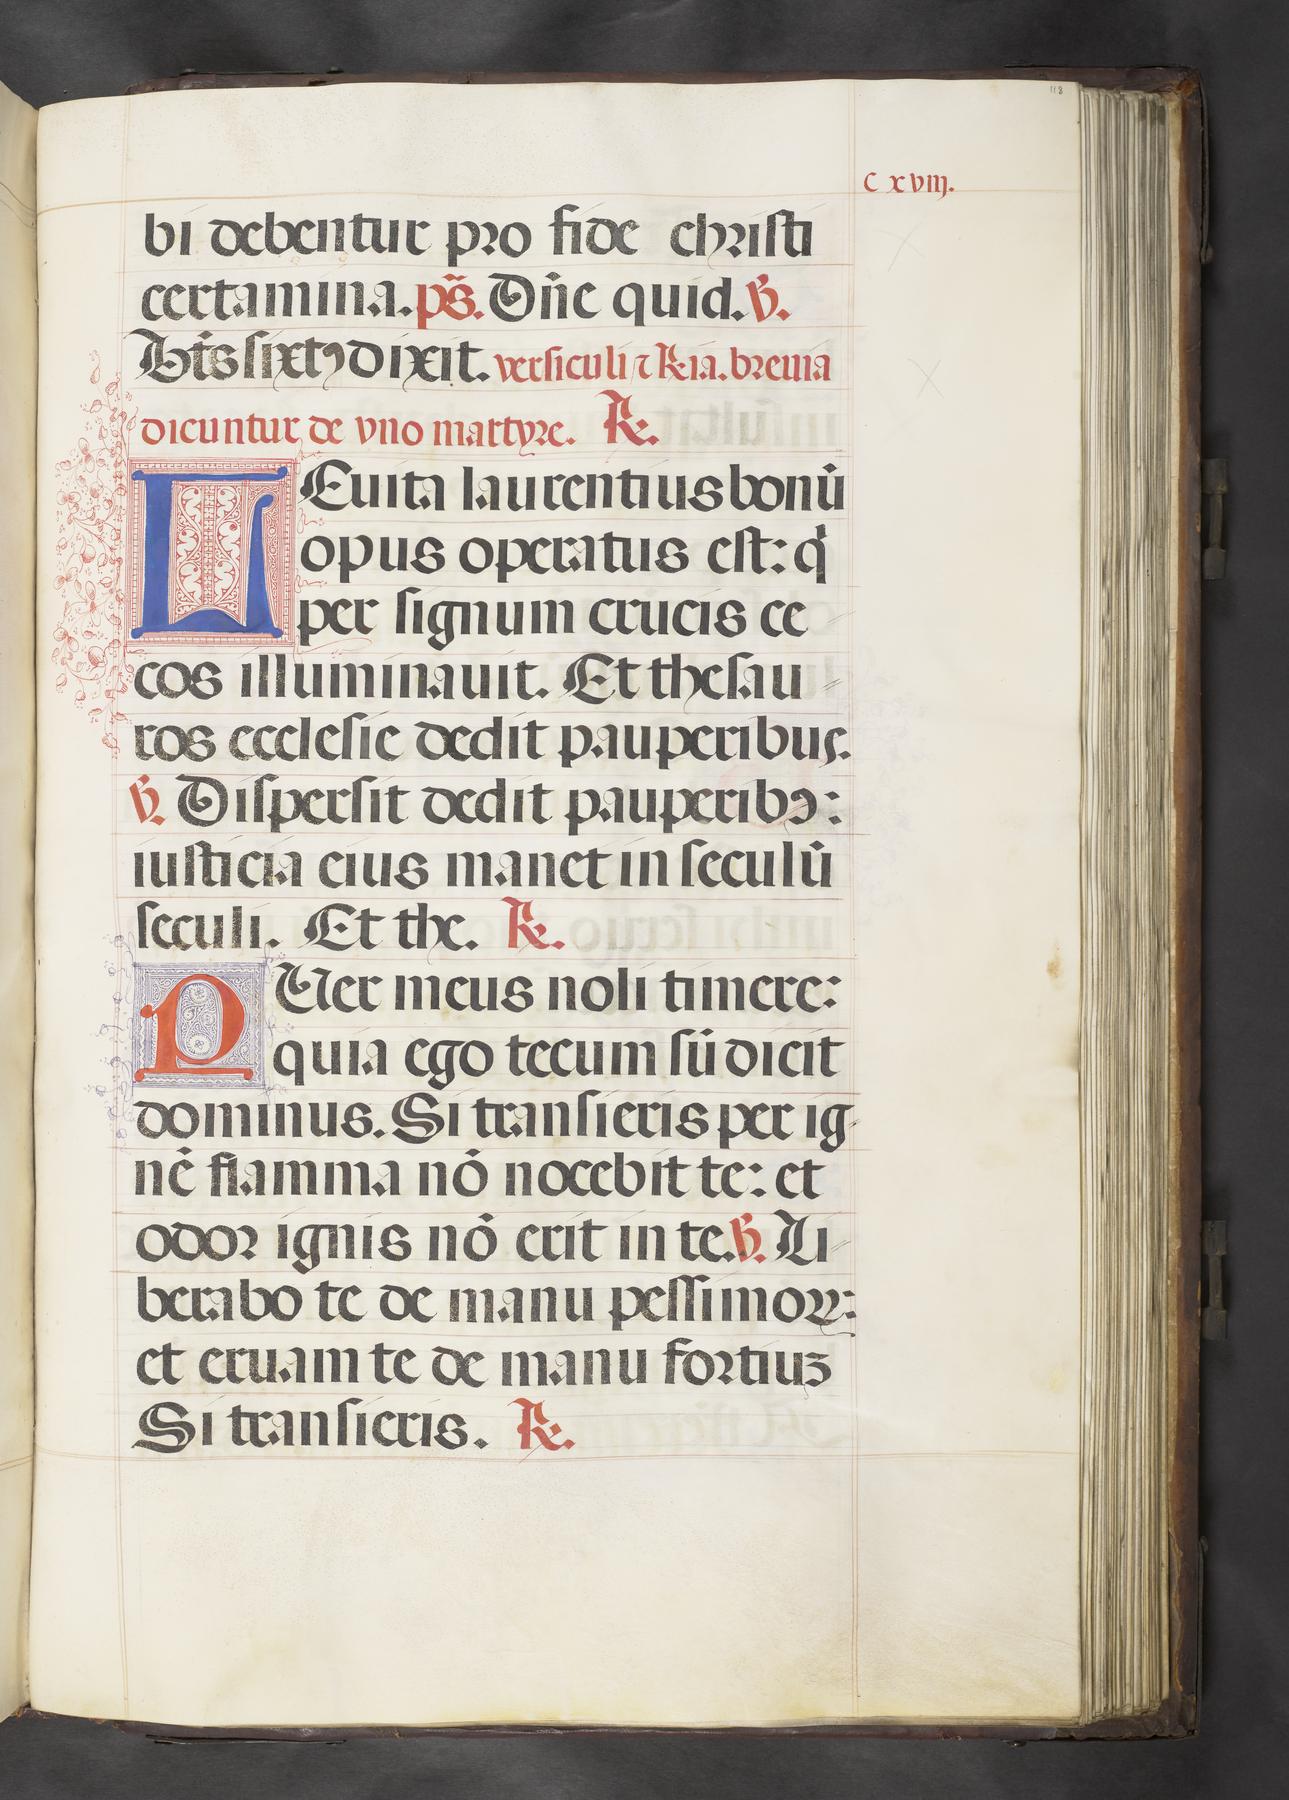 118
C xviij.
bi debentur pro fide christi
certamina. ps̃. Dñe quid. ℣.
Bt̃s sixtꝰ dixit. versiculi ⁊ R̃ia. breuia
dicuntur de vno martyre. ℟.
LEuita laurentius bonũ
opus operatus est: q̇
per signum crucis ce
cos illuminauit. Et thesau
ros ecclesie dedit pauperibus.
℣. Dispersit dedit pauperibꝰ:
iusticia eius manet in seculũ
seculi. Et the. ℟.
PUer meus noli timere:
quia ego tecum sũ dicit
dominus. Si transieris per ig
nẽ flamma nõ nocebit te: et
odor ignis nõ erit in te. ℣. Li
berabo te de manu pessimoꝝ:
et eruam te de manu fortiuz
Si transieris. ℟.